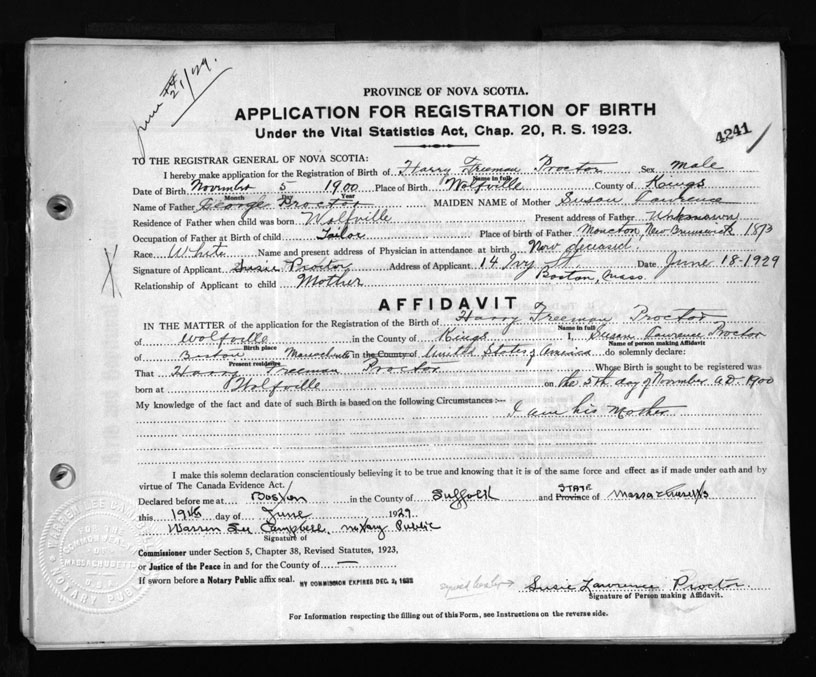 June 21/29.
PROVINCE OF NOVA SCOTIA.
APPLICATION FOR REGISTRATION OF BIRTH
Under the Vital Statistics Act, Chap. 20, R. S. 1923.
4241
TO THE REGISTRAR GENERAL OF NOVA SCOTIA:
I hereby make application for the Registration of Birth of Harry Freeman Proctor Sex Male
Name in full
Date of Birth November 5 1900 Place of Birth Wolfville County of Kings
Month Day Year
Name of Father George Proctor MAIDEN NAME of Mother Susan Lawrence
Residence of Father when child was born Wolfville Present address of Father Unknown
Occupation of Father at Birth of child Tailor Place of birth of Father Moncton, New Brunswick 1873
Race White Name and present address of Physician in attendance at birth Now deceased
Signature of Applicant Susie Proctor Address of Applicant 14 Ivy St. Date June 18-1929
Boston, Mass.
Relationship of Applicant to child Mother
AFFIDAVIT
IN THE MATTER of the application for the Registration of the Birth of Harry Freeman Proctor
Name in full
of Wolfville in the County of Kings I, Susan Lawrence Proctor
Birth place Name of person making Affidavit
of Boston Massachusetts in the County of United States of America do solemnly declare:
Present residence
That Harry Freeman Proctor Whose Birth is sought to be registered was
born at Wolfville on the 5th day of November A.D. 1900
My knowledge of the fact and date of such Birth is based on the following Circumstances :--
I am his Mother
I make this solemn declaration conscientiously believing it to be true and knowing that it is of the same force and effect as if made under oath and by
virtue of The Canada Evidence Act.
Declared before me at Boston in the County of Suffolk and STATE Province of Massachusetts
this 19th day of June 1929
Warren Campbell, notary Public
Signature of
Commissioner under Section 5, Chapter 38, Revised Statutes, 1923,
or Justice of the Peace in and for the County of
If sworn before a Notary Public affix seal. MY COMMISSION EXPIRES DEC. 2, 1932
Susie Lawrence Proctor.
Signature of Person making Affidavit.
For Information respecting the filling out of this Form, see Instructions on the reverse side.